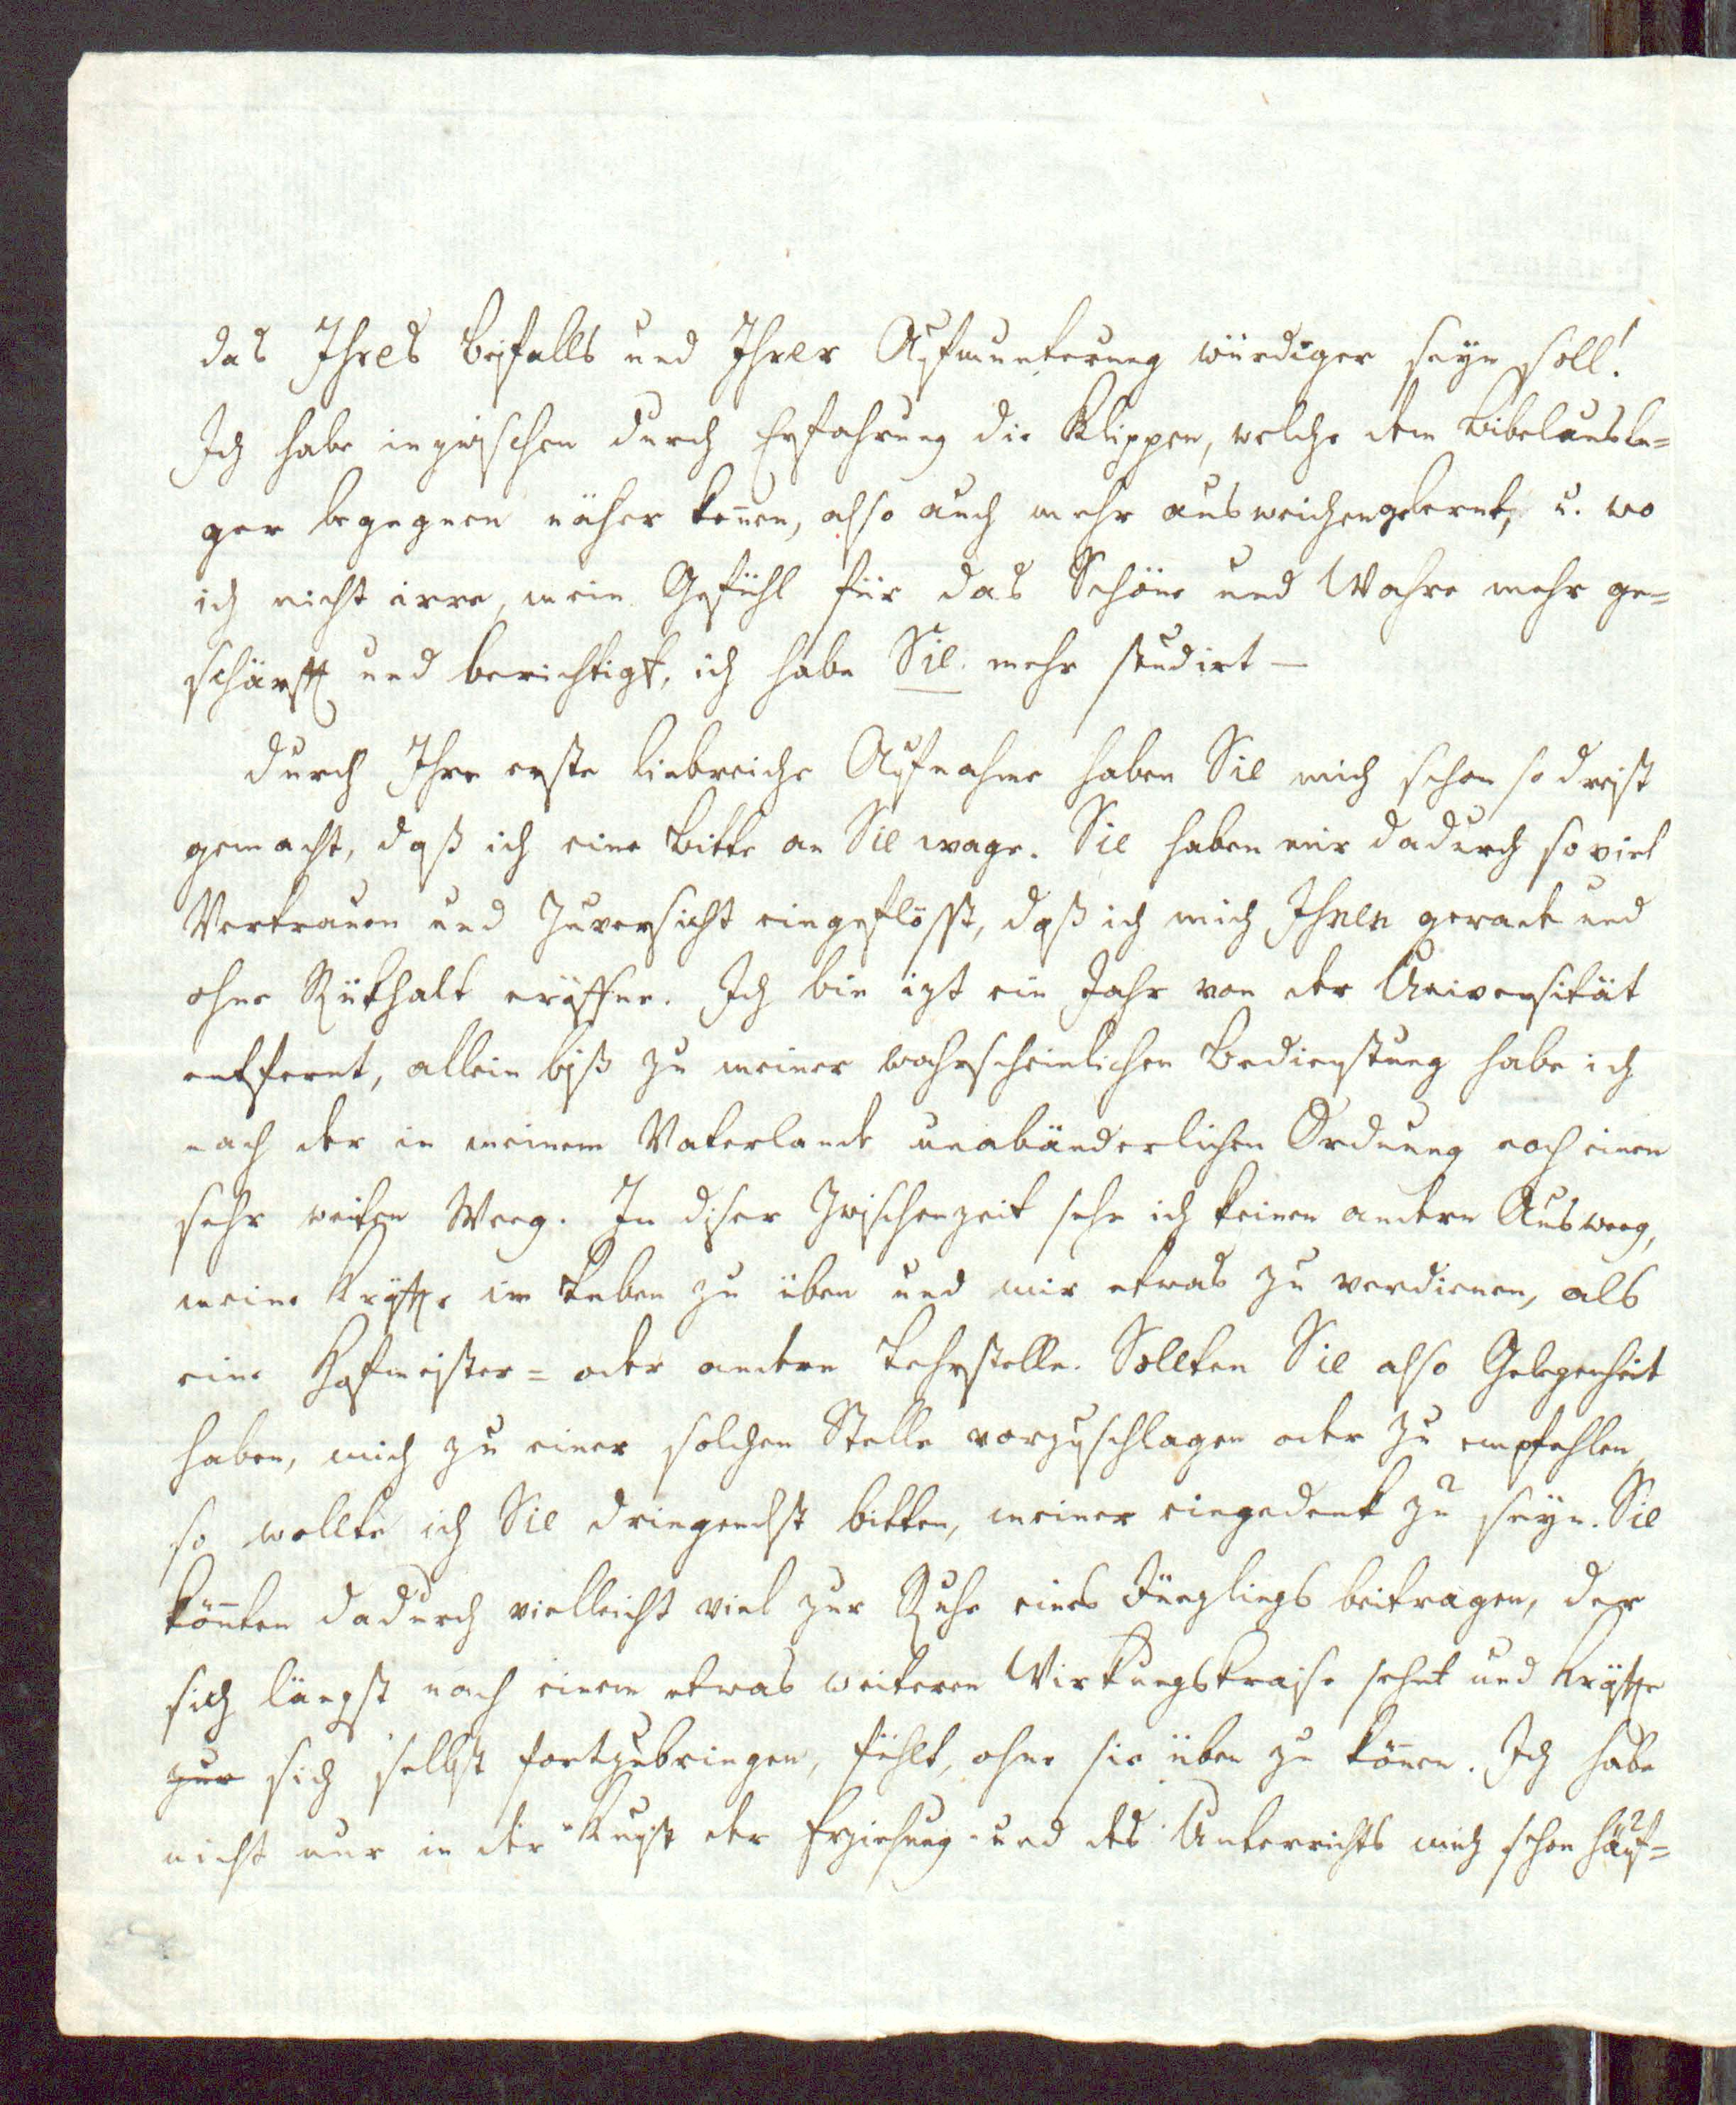 das Ihres Beifalls und Ihrer Aufmunterung würdiger seyn soll!
Ich habe inzwischen durch Erfahrung die Klippen, welche dem Bibelausle=
ger begegnen näher kenen, also auch mehr ausweichengelernt, u. wo
ich nicht irre, mein Gefühl für das Schöne und Wahre mehr ge=
schärft und berichtigt, ich habe Sie mehr studirt —
Durch Ihre erste liebreiche Aufnahme haben Sie mich schon so dreist
gemacht, daß ich eine Bitte an Sie wage. Sie haben mir dadurch so viel
Vertrauen und Zuversicht eingeflösst, daß ich mich Ihnen gerade und
ohne Rükhalt eröffne. Ich bin izt ein Jahr von der Universität
entfernt, allein biß zu meiner wahrscheinlichen Bedienstung habe ich
nach der in meinem Vaterlande unabänderlichen Ordnung noch einen
sehr weiten Weeg. In diser Zwischenzeit sehe ich keinen andern Ausweeg,
meine Kräfte im Leben zu üben und mir etwas zu verdienen, als
eine Hofmeister= oder andere Lehrstelle. Sollten Sie also Gelegenheit
haben, mich zu einer solchen Stelle vorzuschlagen oder zu empfehlen,
so wollte ich Sie dringendst bitten, meiner eingedenk zu seyn. Sie
könten dadurch vielleicht viel zur Ruhe eines Jünglings beitragen, der
sich längst nach einem etwas weiteren Wirkungskraise sehnt und Kräfte
zur sich selbst fortzubringen, fühlt, ohne sie üben zu könen. Ich habe
nicht nur in der Kunst der Erziehung und des Unterrichts mich schon häuf=